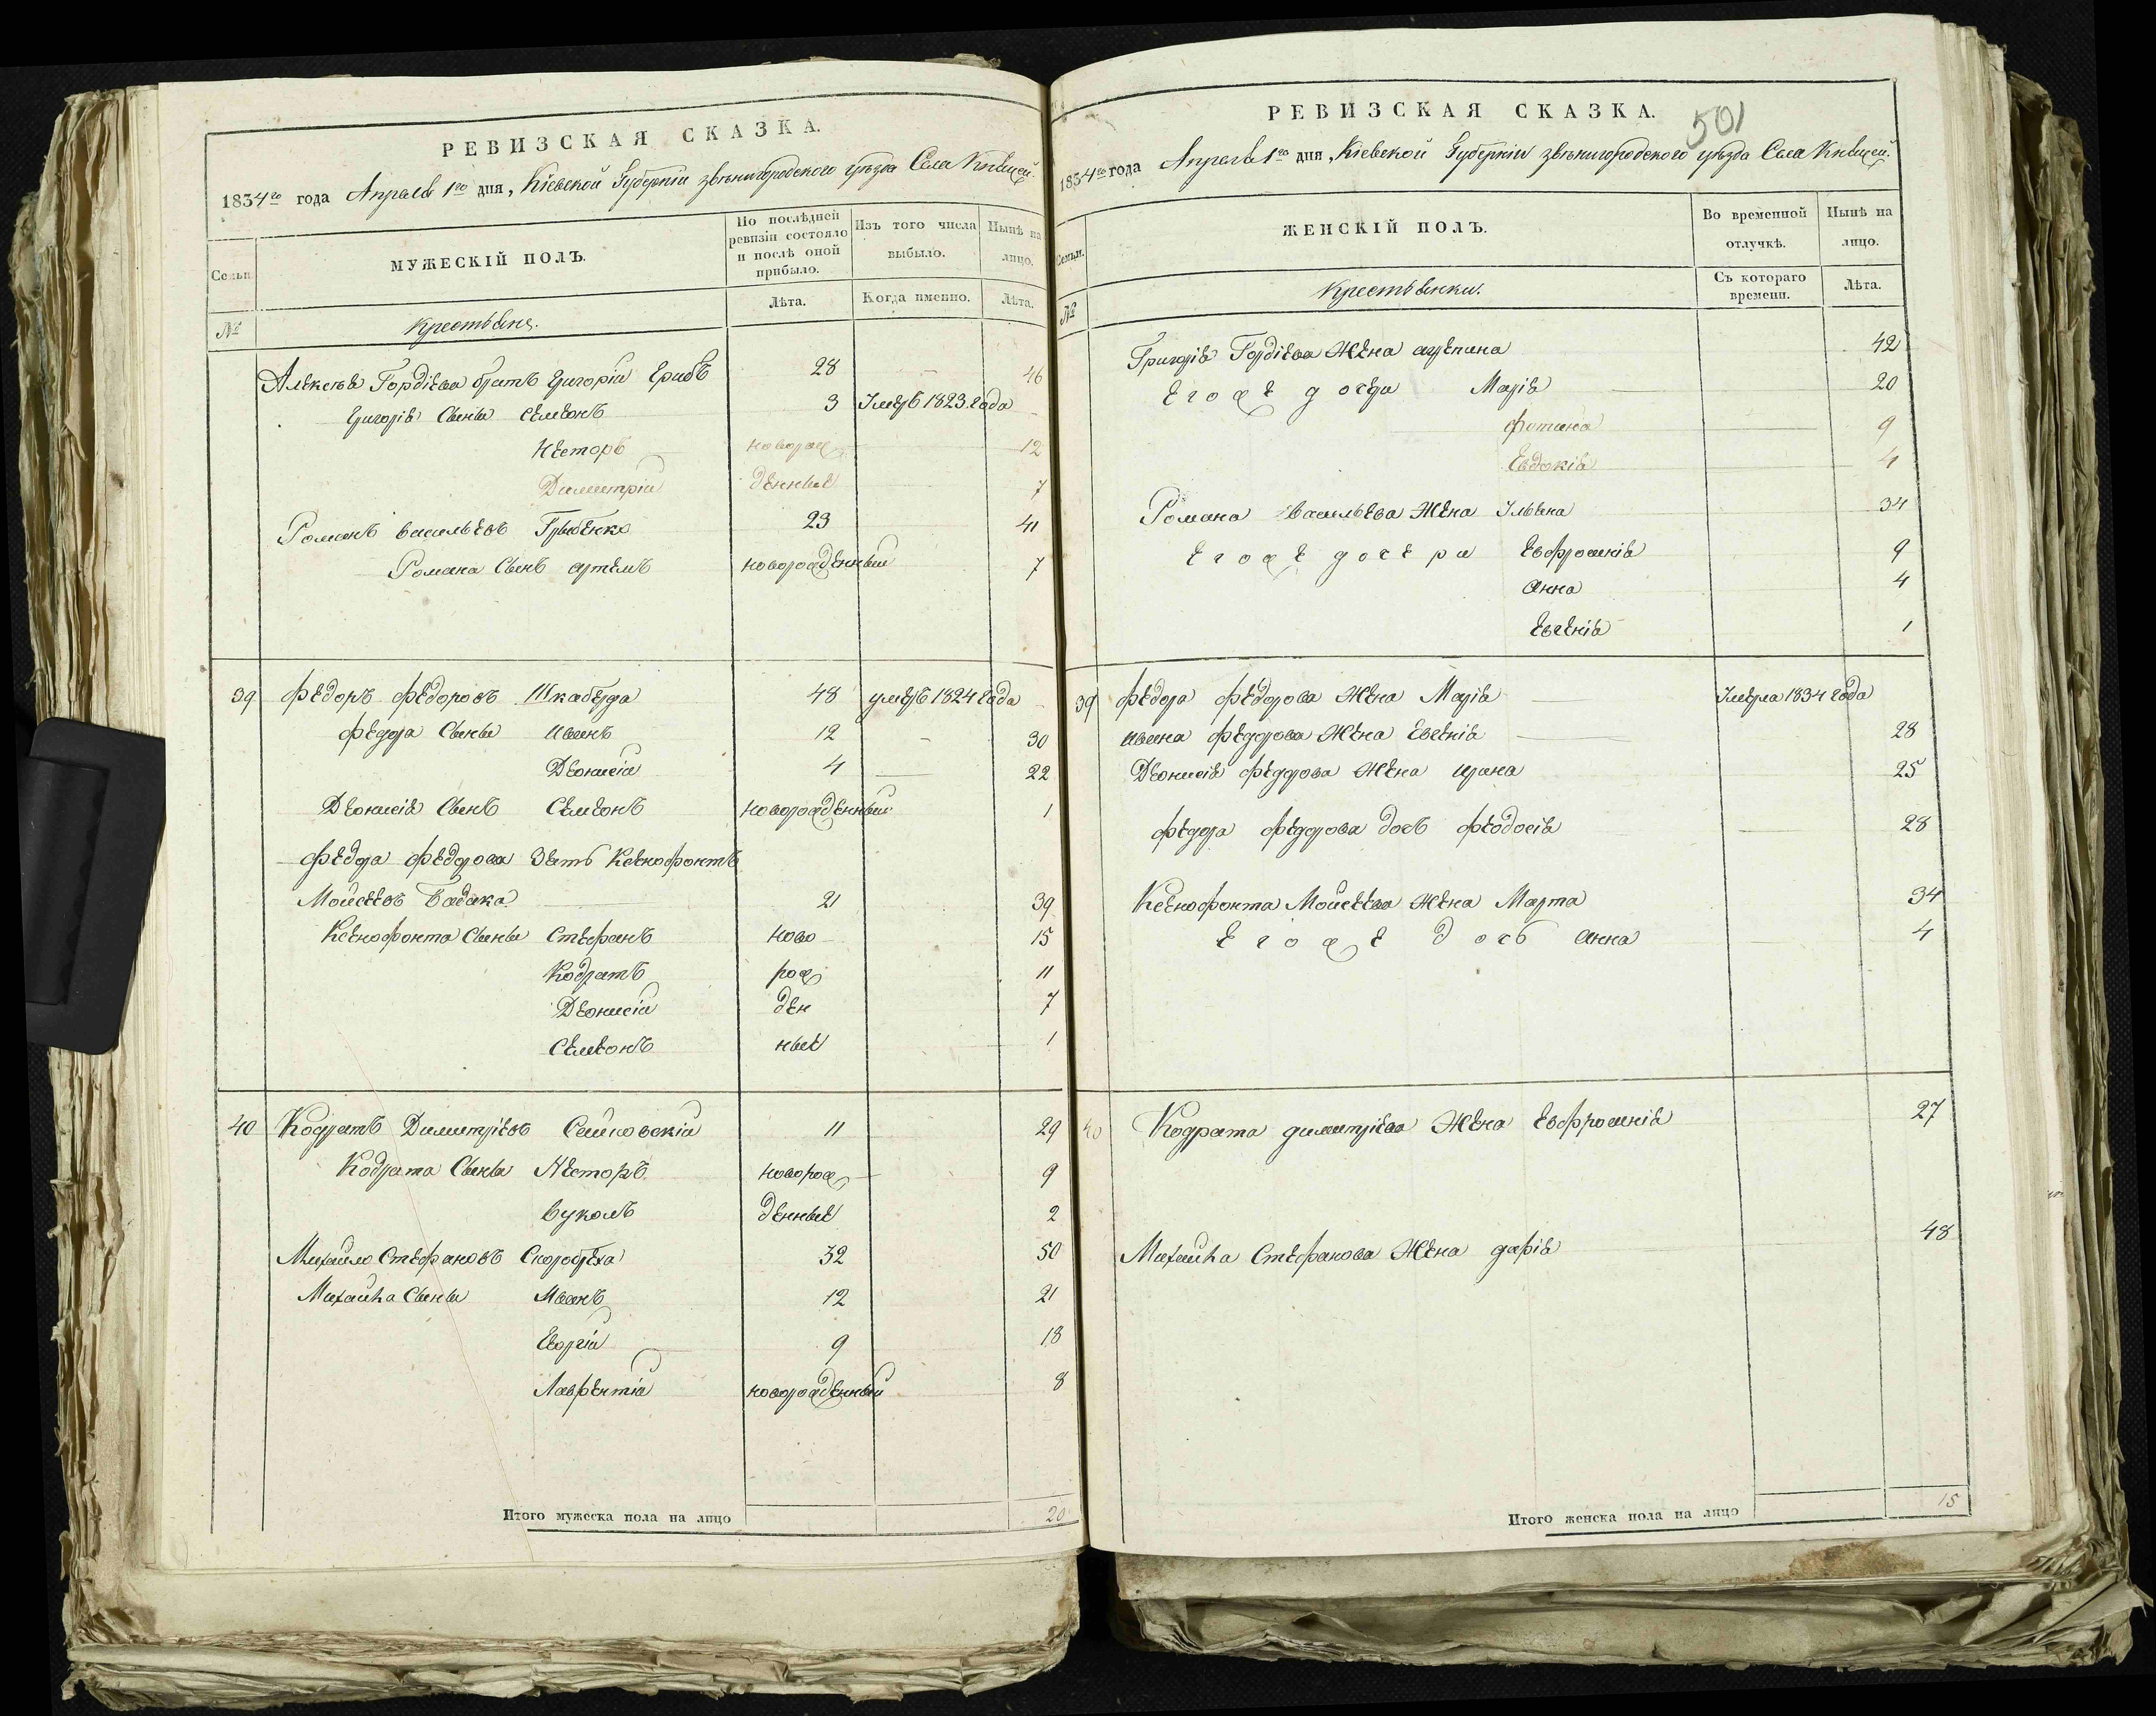 РЕВИЗСКАЯ СКАЗКА.
1834го года Апреля 1го дня, Кіевской Губерніи звѣнигородского уѣзда Села Княжей.
Семьи
МУЖЕСКІЙ ПОЛЪ.
По послѣдней ревизіи состояло и послѣ оной прибыло.
Изъ того числа выбыло.
Нынѣ на лицо.
№
Крестьяне.
Лѣта.
Когда именно.
Лѣта.
Алексѣя Гордіева братъ Григорій 28 46
Григорія Сыны Семионъ 3 1823 года
Несторъ новорож 12
Димитрій денные 7
Романъ васильевъ 23 41
Романа Сынъ артемъ новорожденный 7
39 Федоръ Федоровъ Шкабура 48 умеръ 1824 года
Федора Сыны иванъ 12 30
Деонисій 4 22
Деонисія Сынъ Семионъ новорожденный 1
Федора Федорова Зять Ксенофонтъ
Мойсеевъ Бадака 21 39
Ксенофонта Сыны Стефанъ ново 15
Кодратъ рож 11
Деонисій ден 7
Семионъ ные 1
40 Кодратъ Димитріевъ 11 29
Кодрата Сыны Несторъ новорож 9
вуколъ денные 2
Михайло Стефановъ 32 50
Михайла Сыны Иванъ 12 21
Георгій 9 18
Лаврентій новорожденный 8
Итого мужеска пола на лицо 20
501
РЕВИЗСКАЯ СКАЗКА.
1834го года Апреля 1го дня, Кіевской Губерніи звѣнигородского уѣзда Села Княжей.
Семьи.
ЖЕНСКІЙ ПОЛЪ.
Во временной отлучкѣ.
Нынѣ на лицо.
№
Крестьянки.
Съ котораго времени.
Лѣта.
Григорія Гордіева Жена агрепина 42
Егоже дочери Марія 20
Фотина 9
Евдокія 4
Романа васильева Жена Ульяна 34
Егоже дочери Евфросинія 9
Анна 4
Евгенія 1
39 Федора Федорова Жена Марія Умерла 1834 года
ивана Федорова Жена Евгенія 28
Деонисія Федорова Жена ирина 25
Федора Федорова дочь Феодосія 28
Ксенофонта Мойсеева Жена Марта 34
Егоже дочь Анна 4
40 Кодрата димитріева Жена Евфросинія 27
Михайла Стефанова Жена дарія 48
Итого женска пола на лицо 15